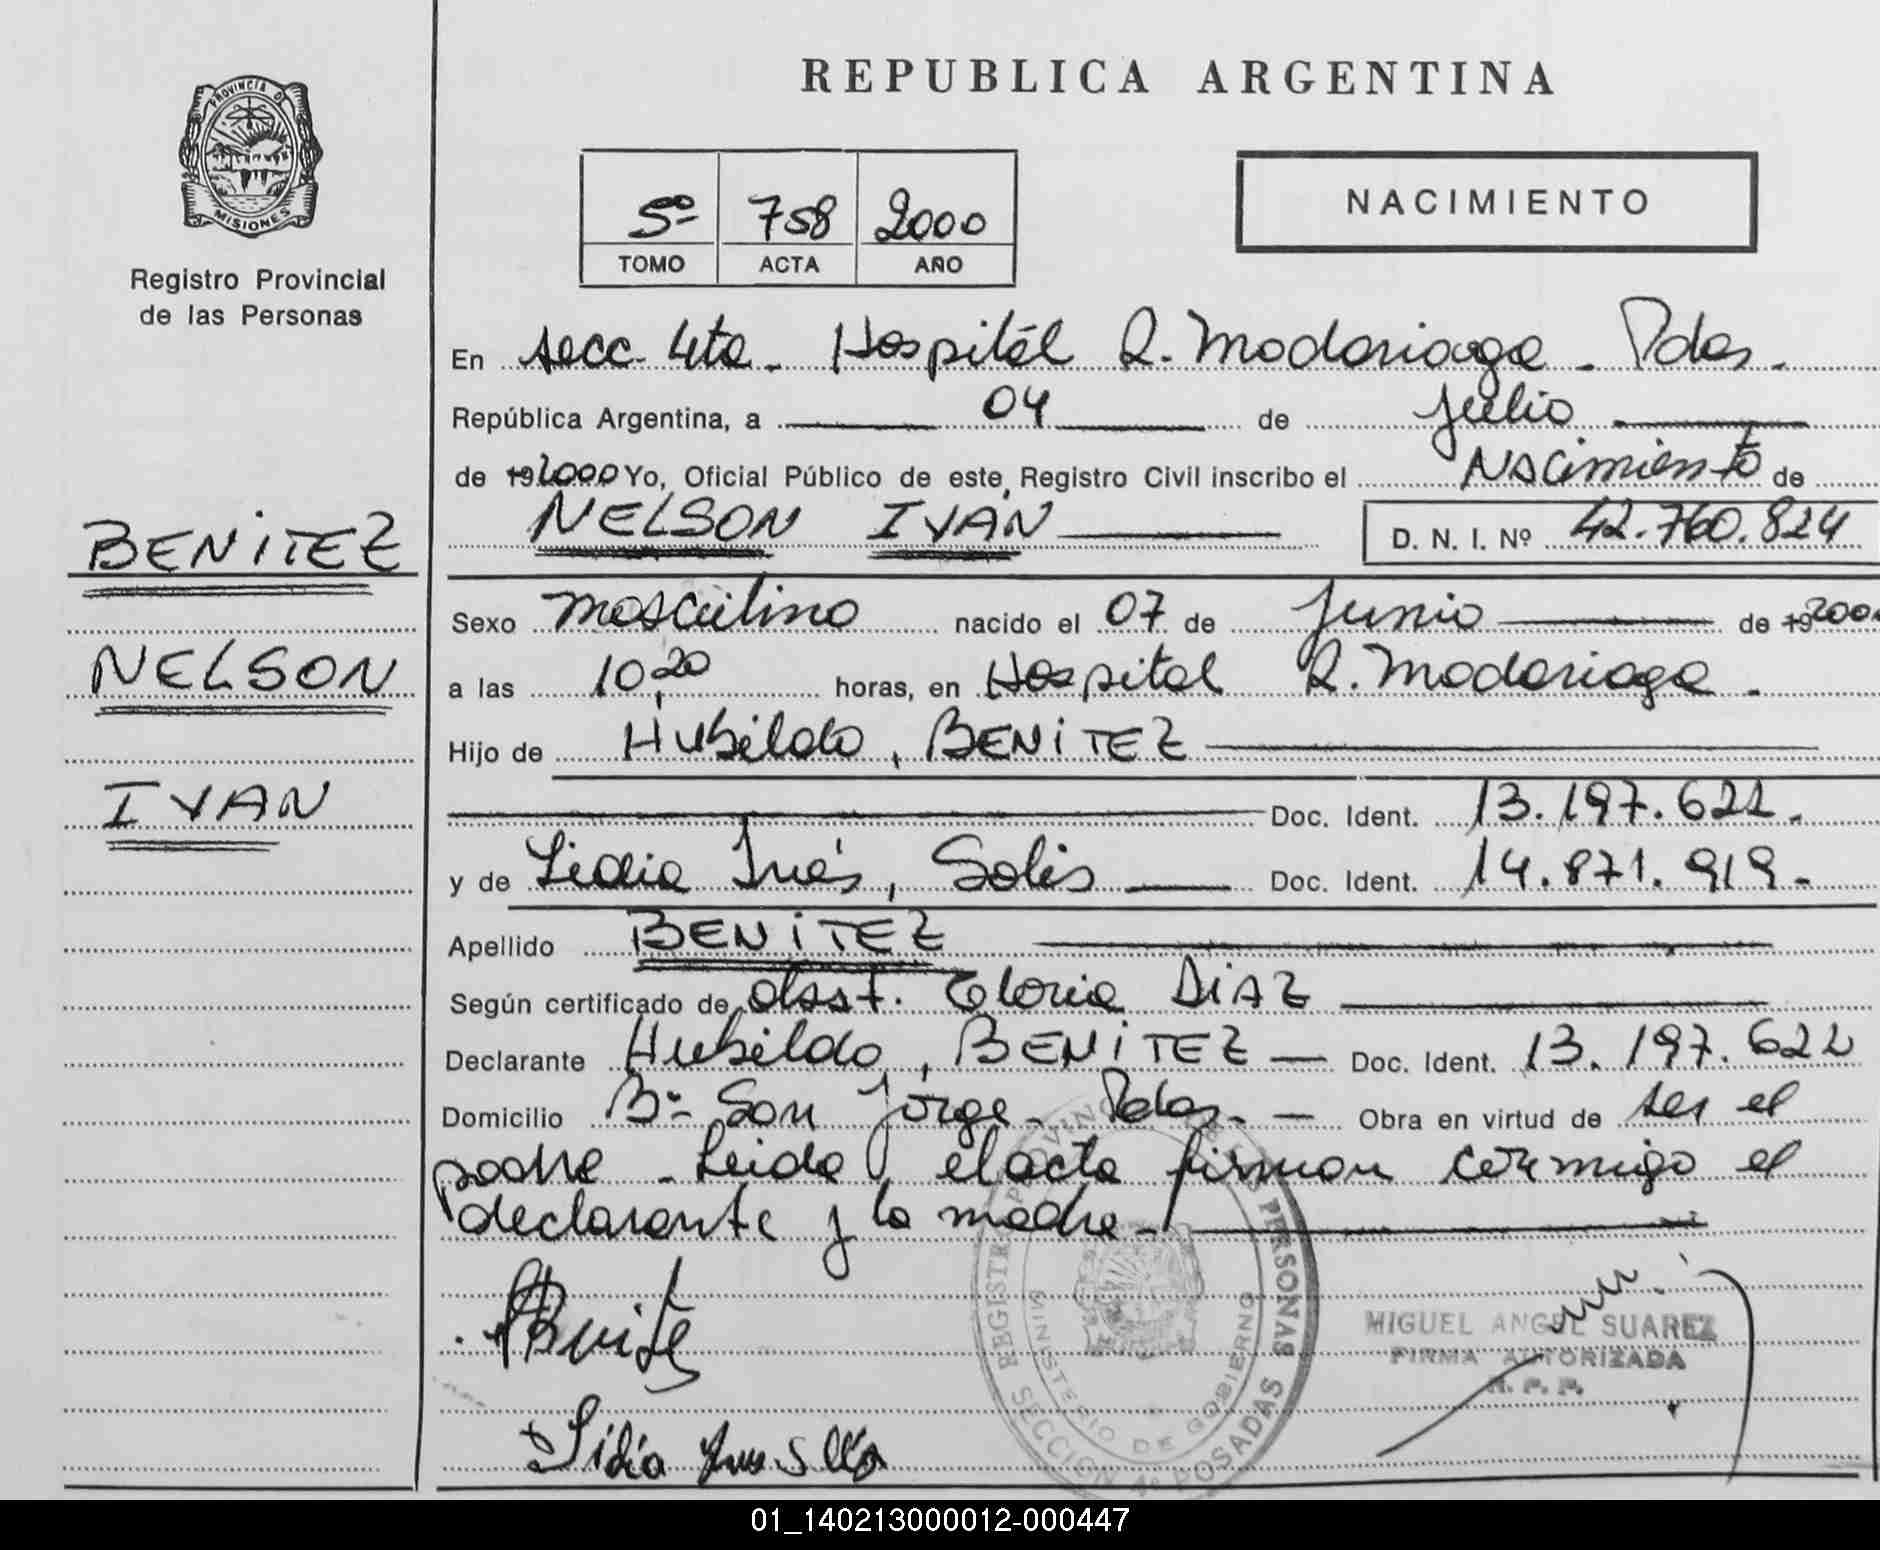 PROVINCIA DE
MISIONES
Registro Provincial
de las Personas
BENITEZ
NELSON
IVAN
REPUBLICA ARGENTINA
5º 758 2000
TOMO ACTA AÑO
NACIMIENTO
En secc. 4ta. Hospital R. Madariaga - Pdas.
República Argentina, a 04 de julio
de 192000 Yo, Oficial Público de este Registro Civil inscribo el Nacimiento de
NELSON IVAN D. N. I. Nº 42.760.824
Sexo masculino nacido el 07 de Junio de 192000
a las 10,20 horas, en Hospital R. Madariaga.
Hijo de Hubildo, BENITEZ
Doc. Ident. 13.197.622.
y de Lidia Inés, Solis Doc. Ident. 14.871.919.
Apellido BENITEZ
Según certificado de obst. Gloria DIAZ
Declarante Hubildo, BENITEZ Doc. Ident. 13.197.622
Domicilio Bº San Jorge - Pdas. Obra en virtud de ser el
padre - Leida el acta firman conmigo el
declarante y la madre.
REGISTRO PROVINCIAL DE LAS PERSONAS
MINISTERIO DE GOBIERNO
SECCION 4º POSADAS
MIGUEL ANGEL SUAREZ
FIRMA AUTORIZADA
R. P. P.
Lidia Ines Solis
01_140213000012-000447